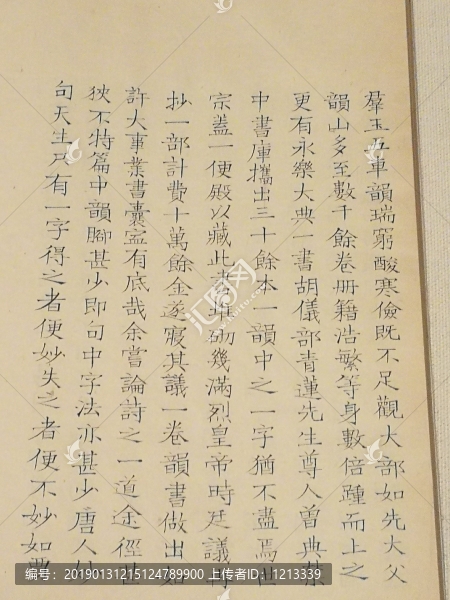 羣玉五車韻瑞窮酸寒儉既不足觀大部如先大父
韻山多至數千餘卷册籍浩繁等身數倍踵而上之
更有永樂大典一書胡儀部青蓮先生尊人曾典禁
中書庫攜出三十餘本一韻中之一字猶不盡焉世
宗蓋一便殿以藏此書堆砌幾滿烈皇帝時廷議再
抄一部計費十萬餘金遂寢其議一卷韻書做出如
許大事業書囊寧有底哉余嘗論詩之一道途徑甚
狹不特篇中韻脚甚少即句中字法亦甚少唐人
句天生只有一字得之者便妙失之者便不妙如
编号：20190131215124789900 上传者ID：1213339